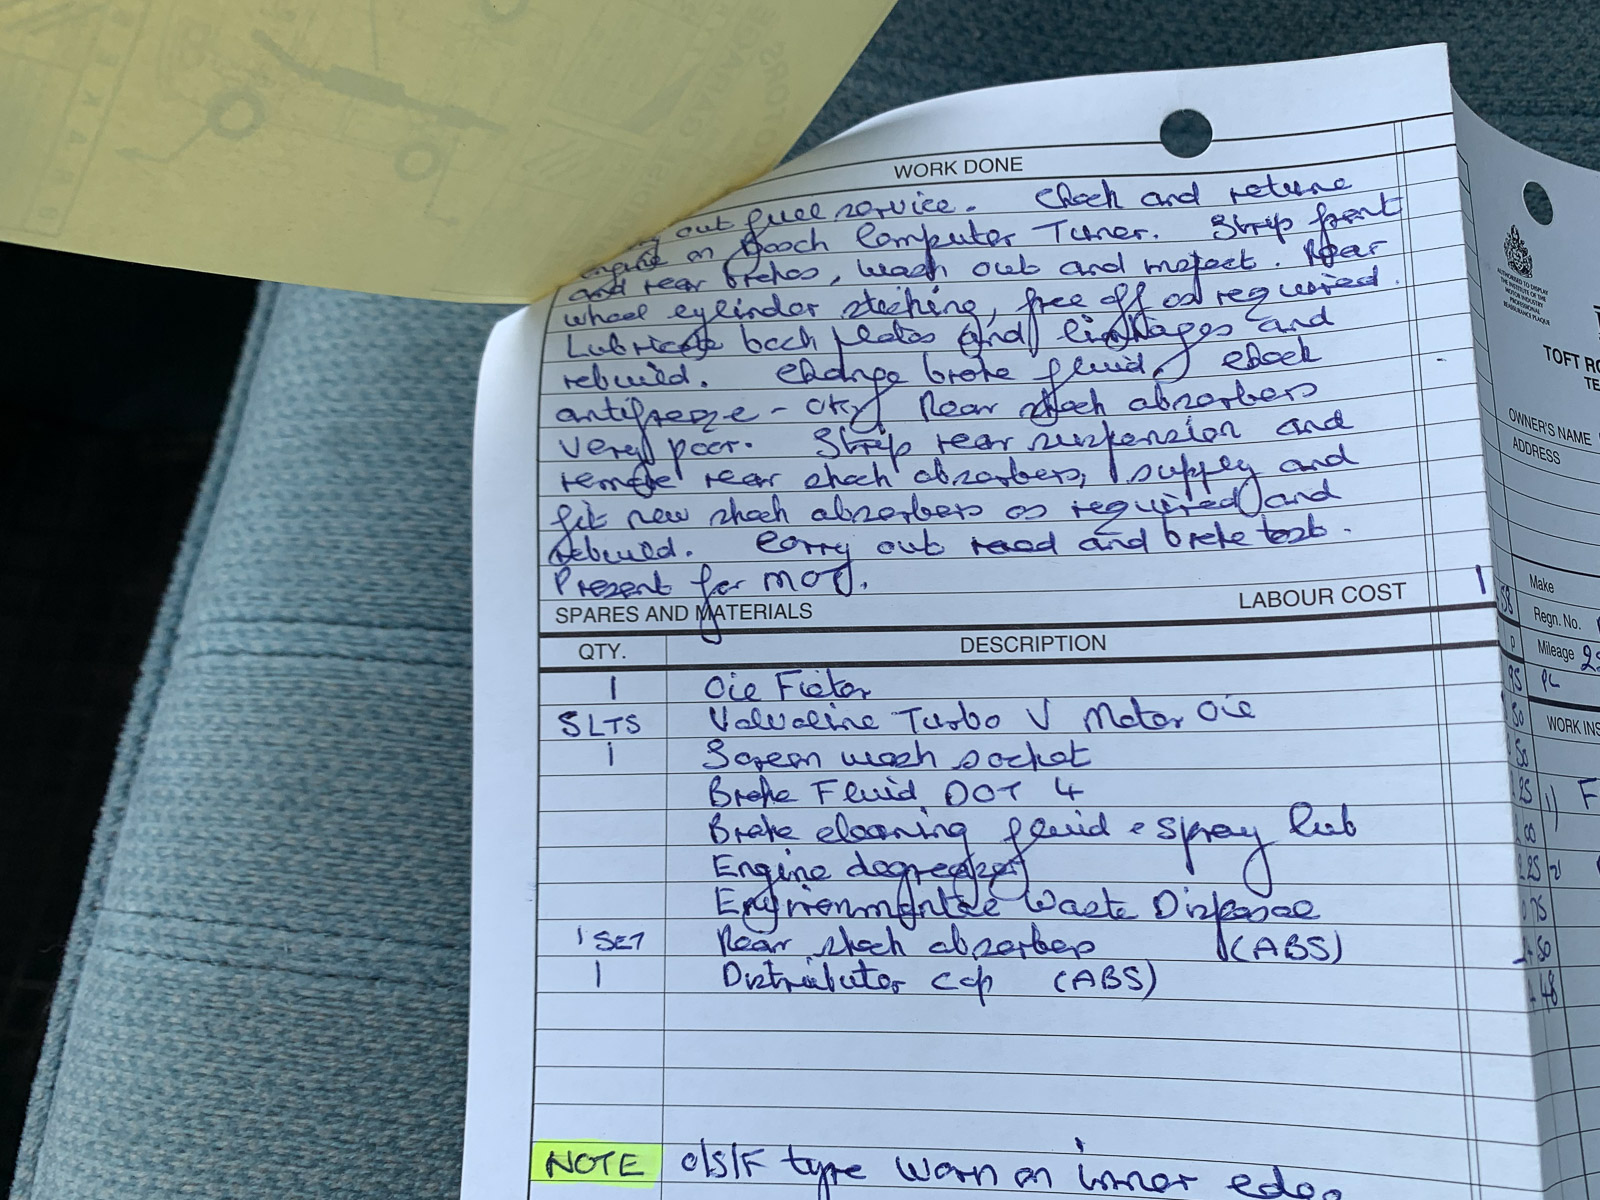 WORK DONE
out full service. Check and retune
engine on Bosch Computer Tuner. Strip front
and rear brakes, wash out and inspect. Rear
wheel cylinder sticking, free off as required.
Lubricate back plates and linkages and
rebuild. Change brake fluid, check
antifreeze - OK, Rear shock absorbers
very poor. Strip rear suspension and
remove rear shock absorbers, supply and
fit new shock absorbers as required and
rebuild. Carry out road and brake test.
Present for MOT.
SPARES AND MATERIALS LABOUR COST 1
QTY. DESCRIPTION
1 Oil Filter
5 LTS Valvoline Turbo V Motor Oil
1 Screen wash socket
Brake Fluid DOT 4
Brake cleaning fluid & Spray lub
Engine degreaser
Environmental Waste Disposal
1 SET Rear shock absorbers (ABS)
1 Distributor cap (ABS)
NOTE o/s/F tyre worn on inner edge
AUTHORISED TO DISPLAY
THE INSTITUTE OF THE
MOTOR INDUSTRY
PROFESSIONAL
REASSURANCE PLAQUE
TOFT
TE
OWNER'S NAME
ADDRESS
Make
Regn. No.
Mileage
WORK INS
1) F